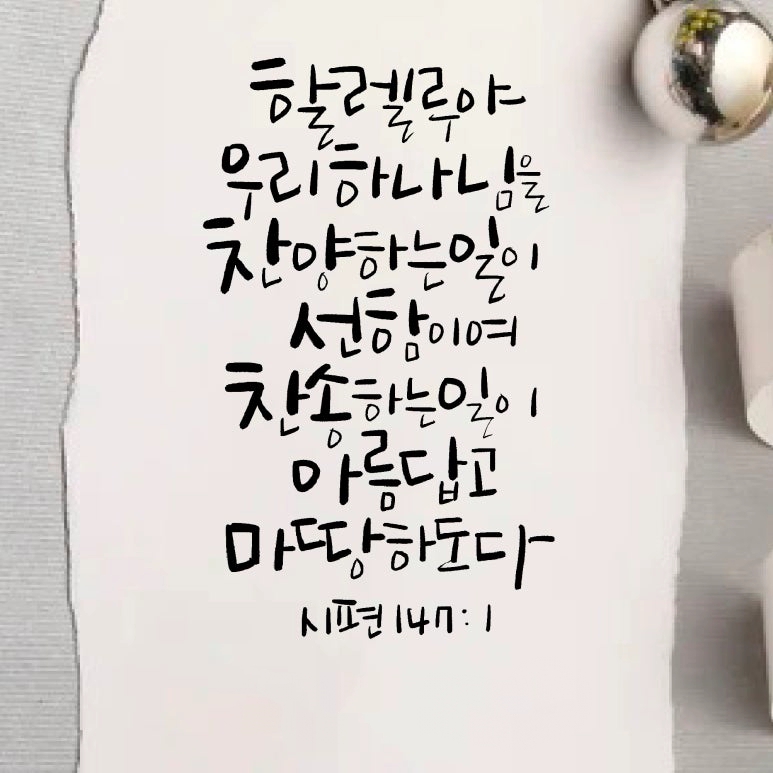 할렐루야
우리하나님을
찬양하는일이
선함이여
찬송하는일이
아름답고
마땅하도다
시편 147:1